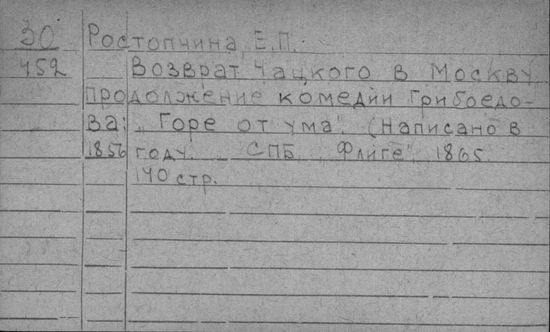 30 Ростопчина, Е.П.
452 Возврат Чацкого в Москву
продолжение комедии Грибоедо-
ва: „Горе от ума". (Написано в
1856 году. СПБ „Флиге" 1865.
140 стр.